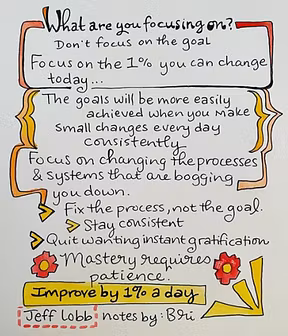 What are you focusing on?
Don't focus on the goal
Focus on the 1% you can change
today...
The goals will be more easily
achieved when you make
small changes every day
consistently
Focus on changing the processes
& systems that are bogging
you down.
Fix the process, not the goal.
Stay consistent
Quit wanting instant gratification
Mastery requires
patience.
Improve by 1% a day
Jeff Lobb notes by: Bri